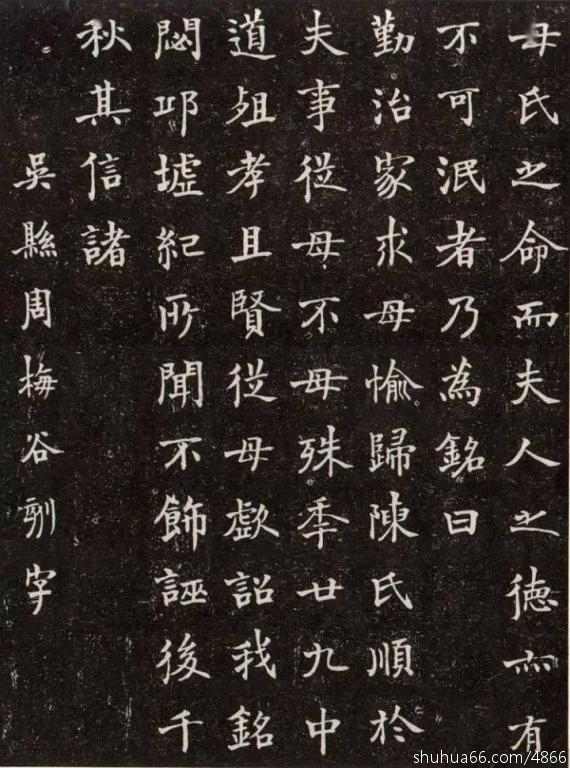 母氏之命而夫人之德亦有
不可泯者乃為銘曰
勤治家求母愉歸陳氏順於
夫事從母不母殊年廿九中
道殂孝且賢從母歔詔我銘
閟邛墟紀所聞不飾誣後千
秋其信諸
吳縣周梅谷刻字
shuhua66.com/4866